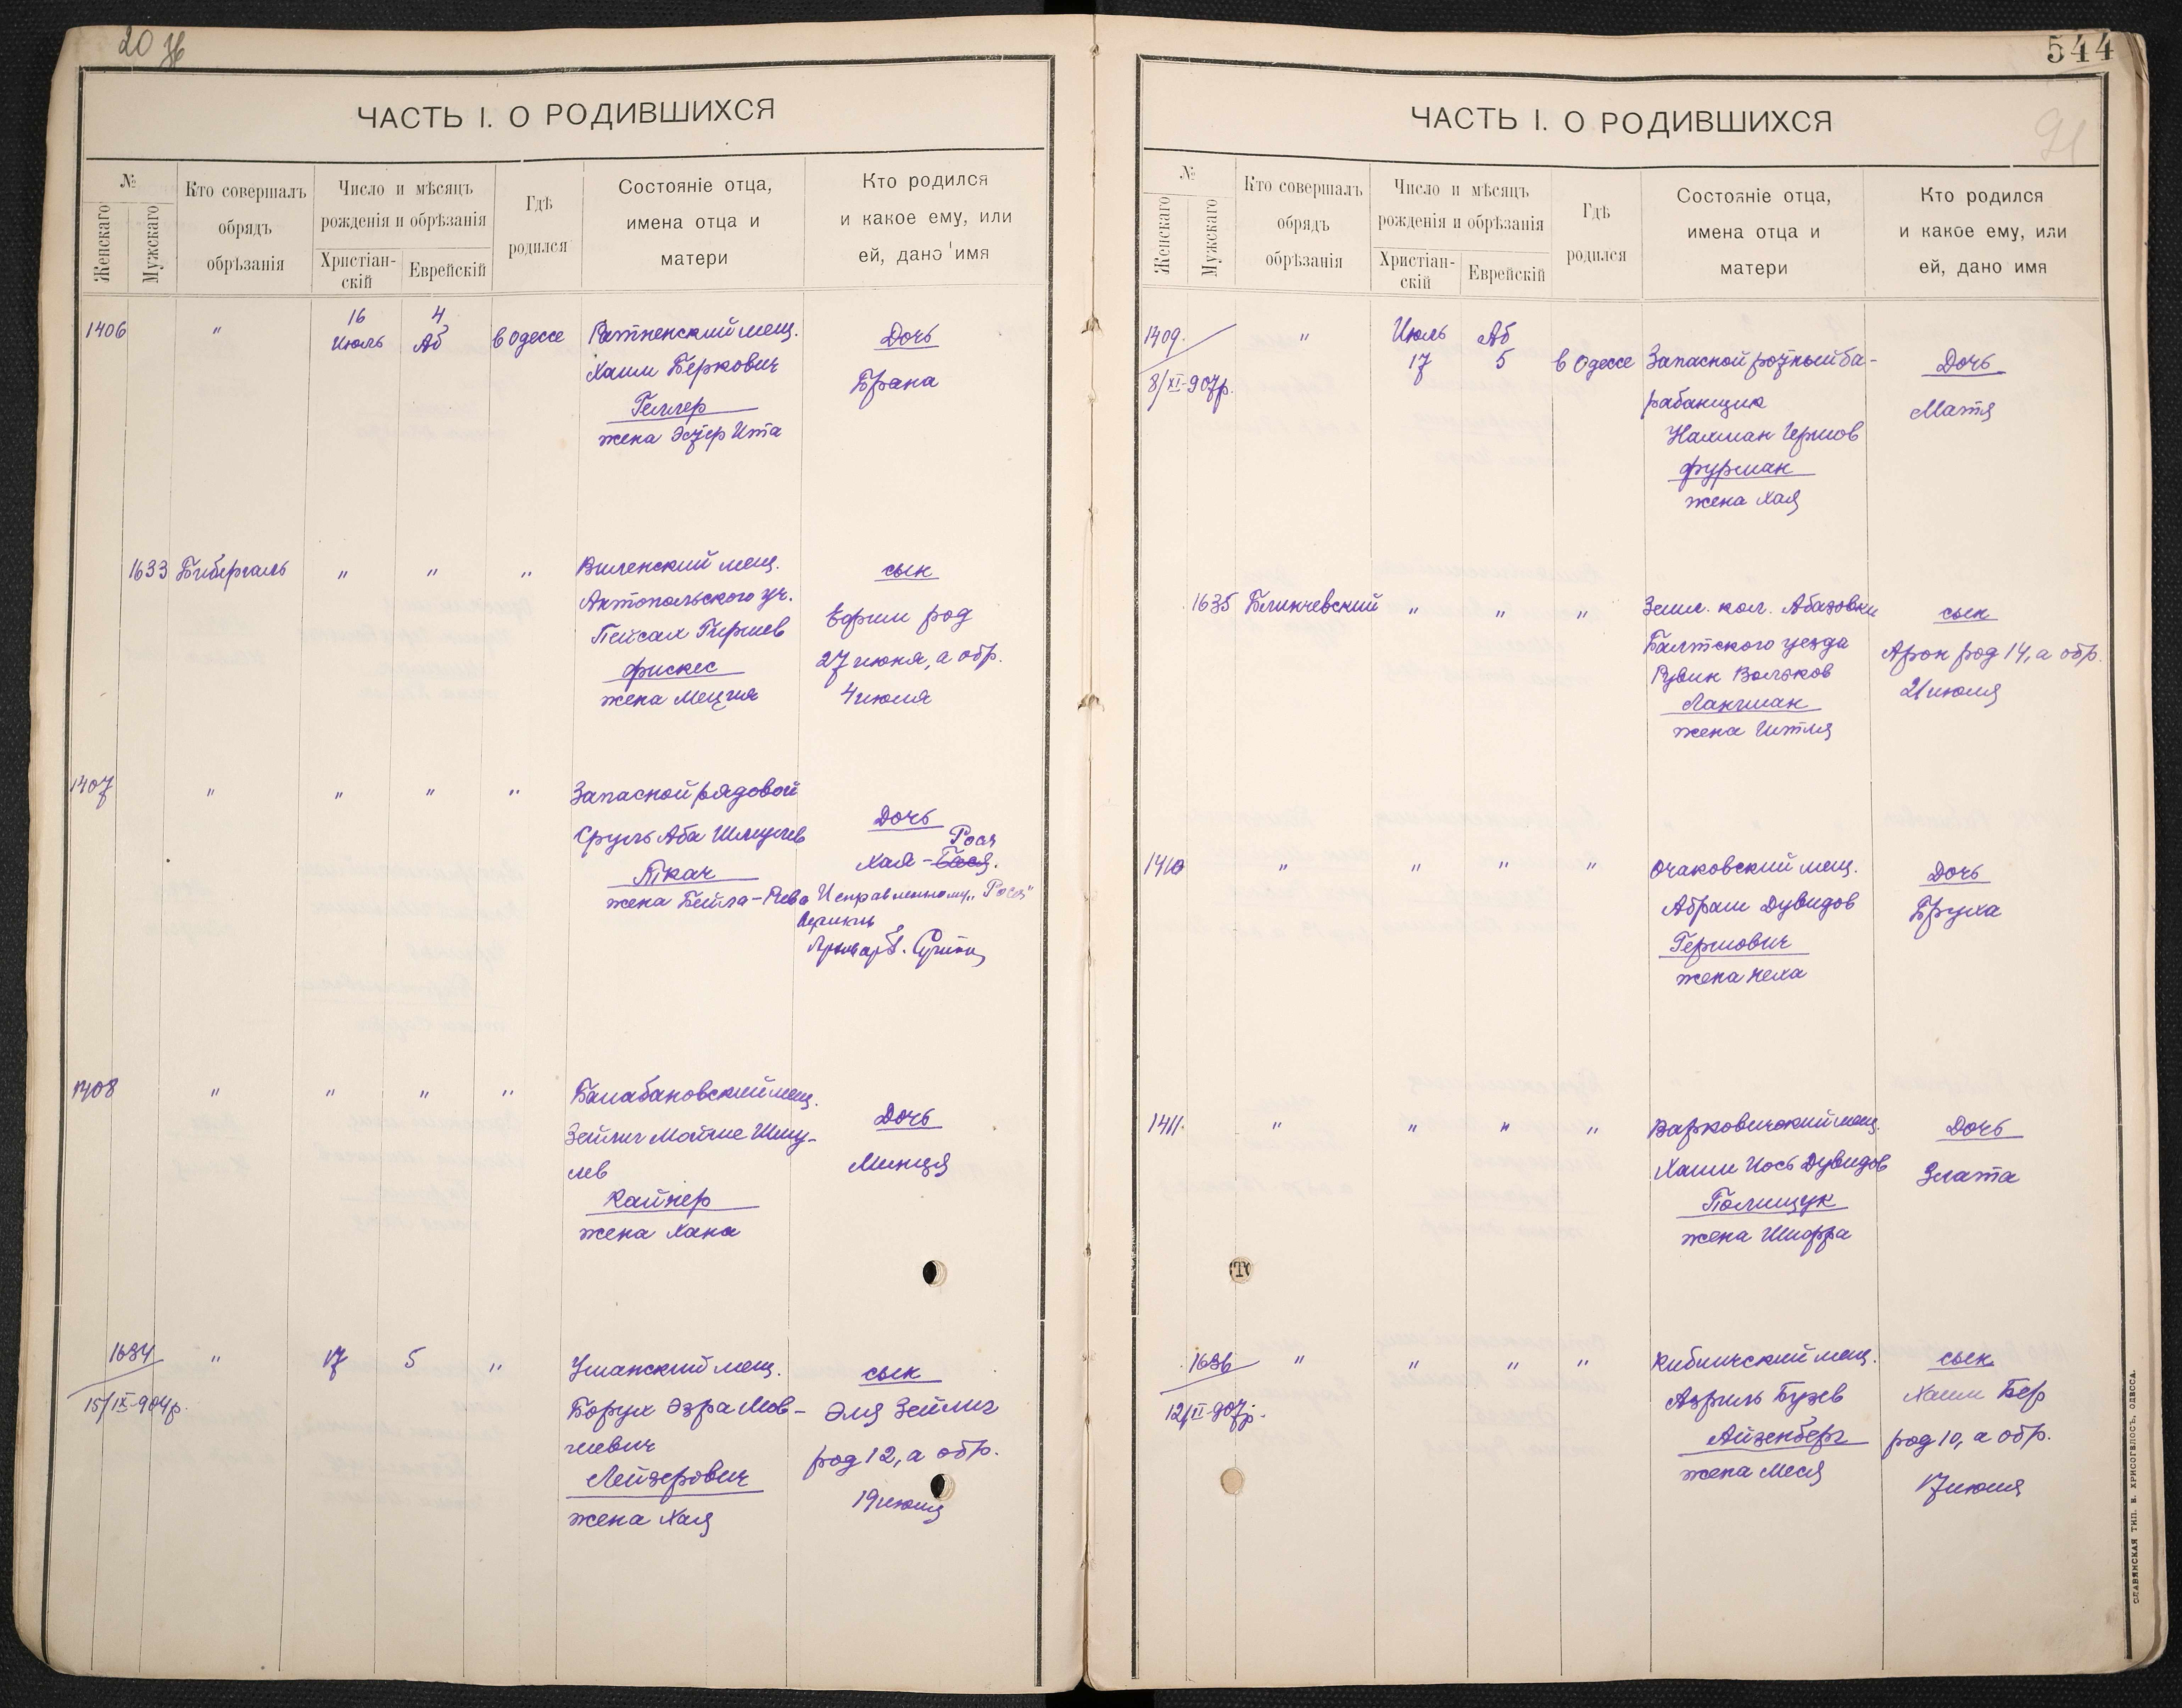 20 об
ЧАСТЬ I. О РОДИВШИХСЯ
№
Женскаго
Мужскаго
Кто совершалъ
обрядъ
обрѣзанія
Число и мѣсяцъ
рожденія и обрѣзанія
Христіан-
скій
Еврейскій
Гдѣ
родился
Состояніе отца,
имена отца и
матери
Кто родился
и какое ему, или
ей, дано имя
1406 " 16 Июль 4 Аб в Одессе
Ратненский мещ.
Хаим Беркович
Геллер
жена Эстер Ита
Дочь
Брана
1633 Бибергаль " " "
Виленский мещ.
Антопольского уч.
Пейсах Гиршев
Фискес
жена
сын
Ефим род
27 июня, а обр.
4 июля
1407 " " " "
Запасной рядовой
Сруль Аба Шмулев
Ткач
жена Бейла-Рива
Дочь
Рося
Хая-Бася.
Исправленному "Рося"
верить
1408 " " " "
Балабановский мещ.
Зейлиг Мойше Шму-
лев
Кайнер
жена Хана
Дочь
Минця
1634 " 17 5 "
15/IX-904 р.
Уманский мещ.
Борух Эзра Мов-
шевич
Лейзерович
жена Хая
сын
Эля Зейлиг
род 12, а обр.
19 июля
544
91
ЧАСТЬ I. О РОДИВШИХСЯ
№
Женскаго
Мужскаго
Кто совершалъ
обрядъ
обрѣзанія
Число и мѣсяцъ
рожденія и обрѣзанія
Христіан-
скій
Еврейскій
Гдѣ
родился
Состояніе отца,
имена отца и
матери
Кто родился
и какое ему, или
ей, дано имя
1409. " Июль 17 Аб 5 в Одессе
8/XI-907 р.
Запасной ротный ба-
рабанщик
Нахман Гершов
Фурман
жена Хая
Дочь
Матя
1635 Блинчевский " " "
Земл. кол. Абазовки
Балтского уезда
Рувин Вольков
Лангман
жена Гитля
сын
Арон род 14, а обр.
21 июля
1410 " " " "
Очаковский мещ.
Абрам Дувидов
Гершович
жена Неха
Дочь
Бруха
1411. " " " "
Варковичский мещ.
Хаим Иось Дувидов
Полищук
жена Шифра
Дочь
Злата
1636 " " " "
12/II-907 р.
Кибличский мещ.
Азриль Бузев
Айзенберг
жена Меся
сын
Хаим Бер
род 10, а обр.
17 июля
СЛАВЯНСКАЯ ТИП. Н. ХРИСОГЕЛОСЪ, ОДЕССА.